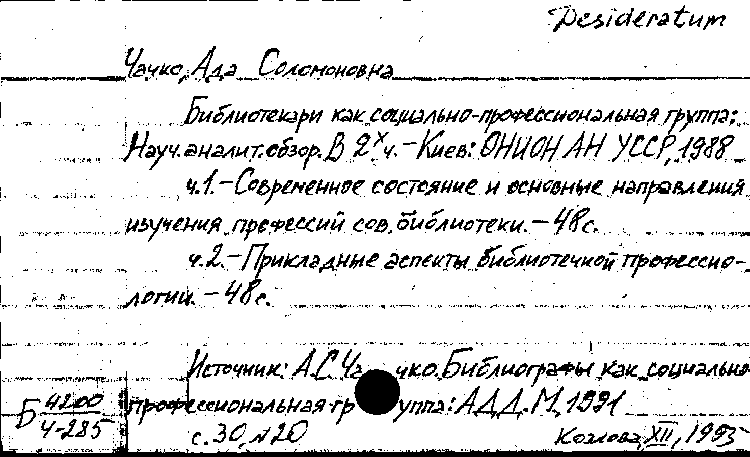 Desideratum
Чачко, Ада Соломоновна
Библиотекари как социально-профессиональная группа:
Науч. аналит. обзор. В 2х ч. – Киев: ОНИОН АН УССР, 1988
ч.1. – Современное состояние и основные направления
изучения профессий сов. библиотеки. – 48 с.
ч.2. – Прикладные аспекты библиотечной профессио-
логии. – 48 с.
Источник: А.С. Чачко. Библиографы как социально
профессиональная группа: АДД. М, 1991
с. 30, №20
Б 4200
Ч-285
Козлова, XII, 1995